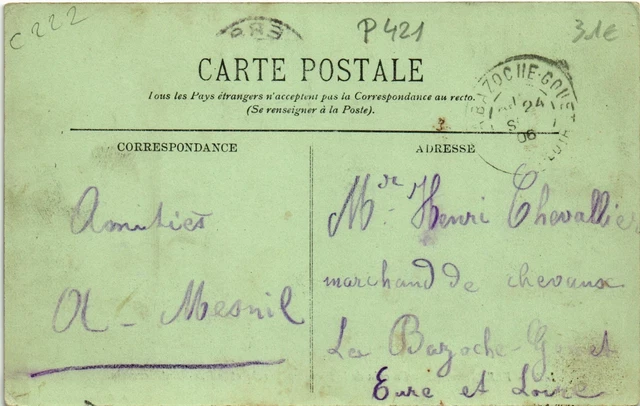 C 222
P 421
31€
CARTE POSTALE
Tous les Pays étrangers n'acceptent pas la Correspondance au recto.
(Se renseigner à la Poste).
CORRESPONDANCE
Amitiés
A - Mesnil
ADRESSE
Mr Henri Chevallier
marchand de chevaux
La Bazoche-Gouet
Eure et Loire
BAZOCHE-GOUET
24
06